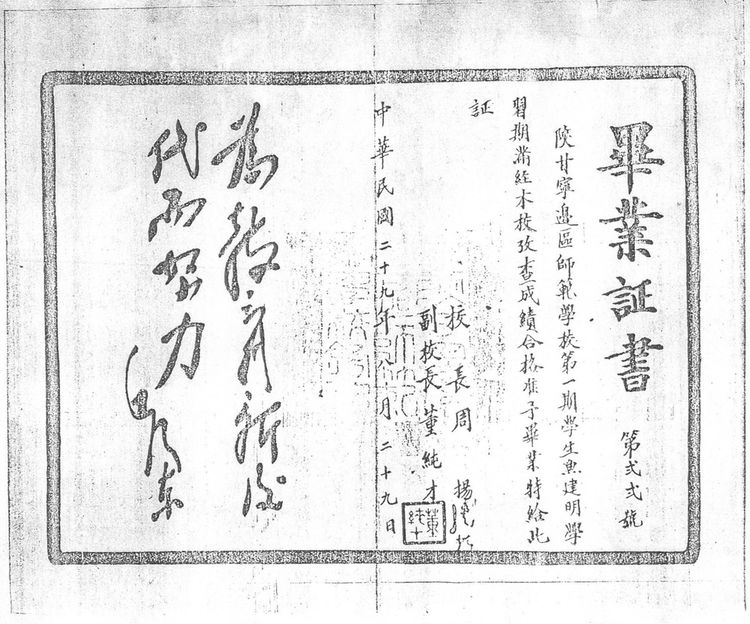 畢業証書
第弍弍號
陝甘寧邊區師範學校第一期學生魚建明學
習期滿經本校攷查成績合格准予畢業特給此
証
校長周揚
副校長董純才
董純才
中華民國二十九年月二十九日
為教育新後
代而努力
毛澤東